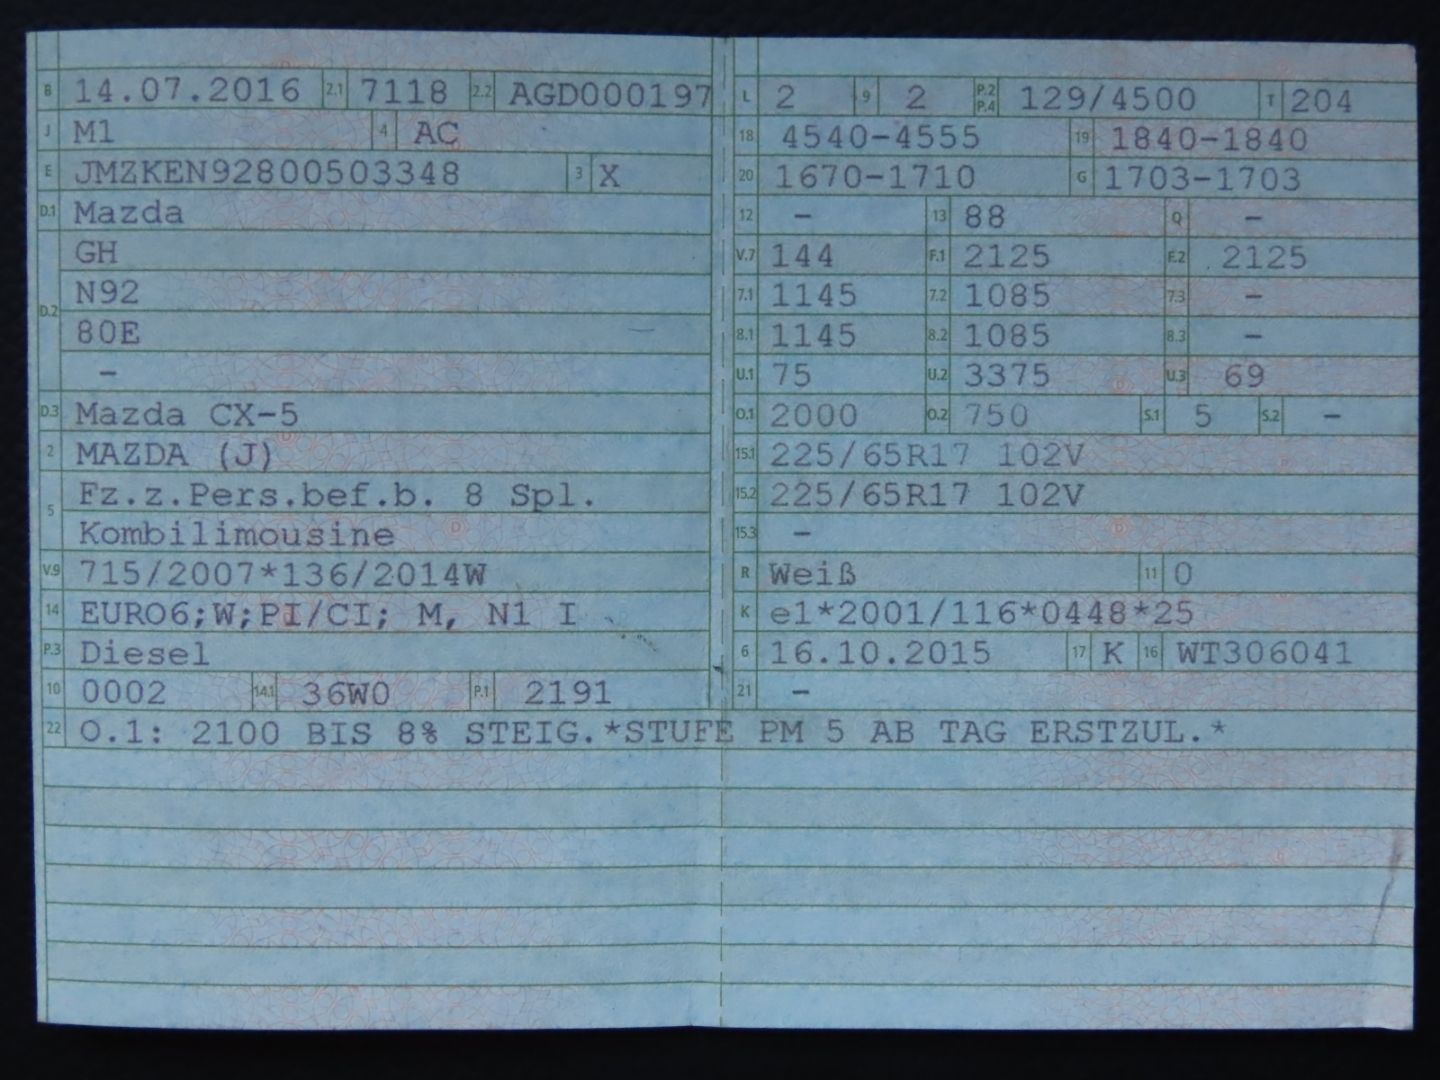 B 14.07.2016 2.1 7118 2.2 AGD000197
J M1 4 AC
E JMZKEN92800503348 3 X
D.1 Mazda
GH
N92
D.2
80E
–
D.3 Mazda CX-5
2 MAZDA (J)
5 Fz.z.Pers.bef.b. 8 Spl.
Kombilimousine
V.9 715/2007*136/2014W
14 EURO6;W;PI/CI; M, N1 I
P.3 Diesel
10 0002 14.1 36W0 P.1 2191
L 2 9 2 P.2 P.4 129/4500 T 204
18 4540-4555 19 1840-1840
20 1670-1710 G 1703-1703
12 – 13 88 Q –
V.7 144 F.1 2125 F.2 2125
7.1 1145 7.2 1085 7.3 –
8.1 1145 8.2 1085 8.3 –
U.1 75 U.2 3375 U.3 69
O.1 2000 O.2 750 S.1 5 S.2 –
15.1 225/65R17 102V
15.2 225/65R17 102V
15.3 –
R Weiß 11 0
K e1*2001/116*0448*25
6 16.10.2015 17 K 16 WT306041
21 –
22 O.1: 2100 BIS 8% STEIG.*STUFE PM 5 AB TAG ERSTZUL.*